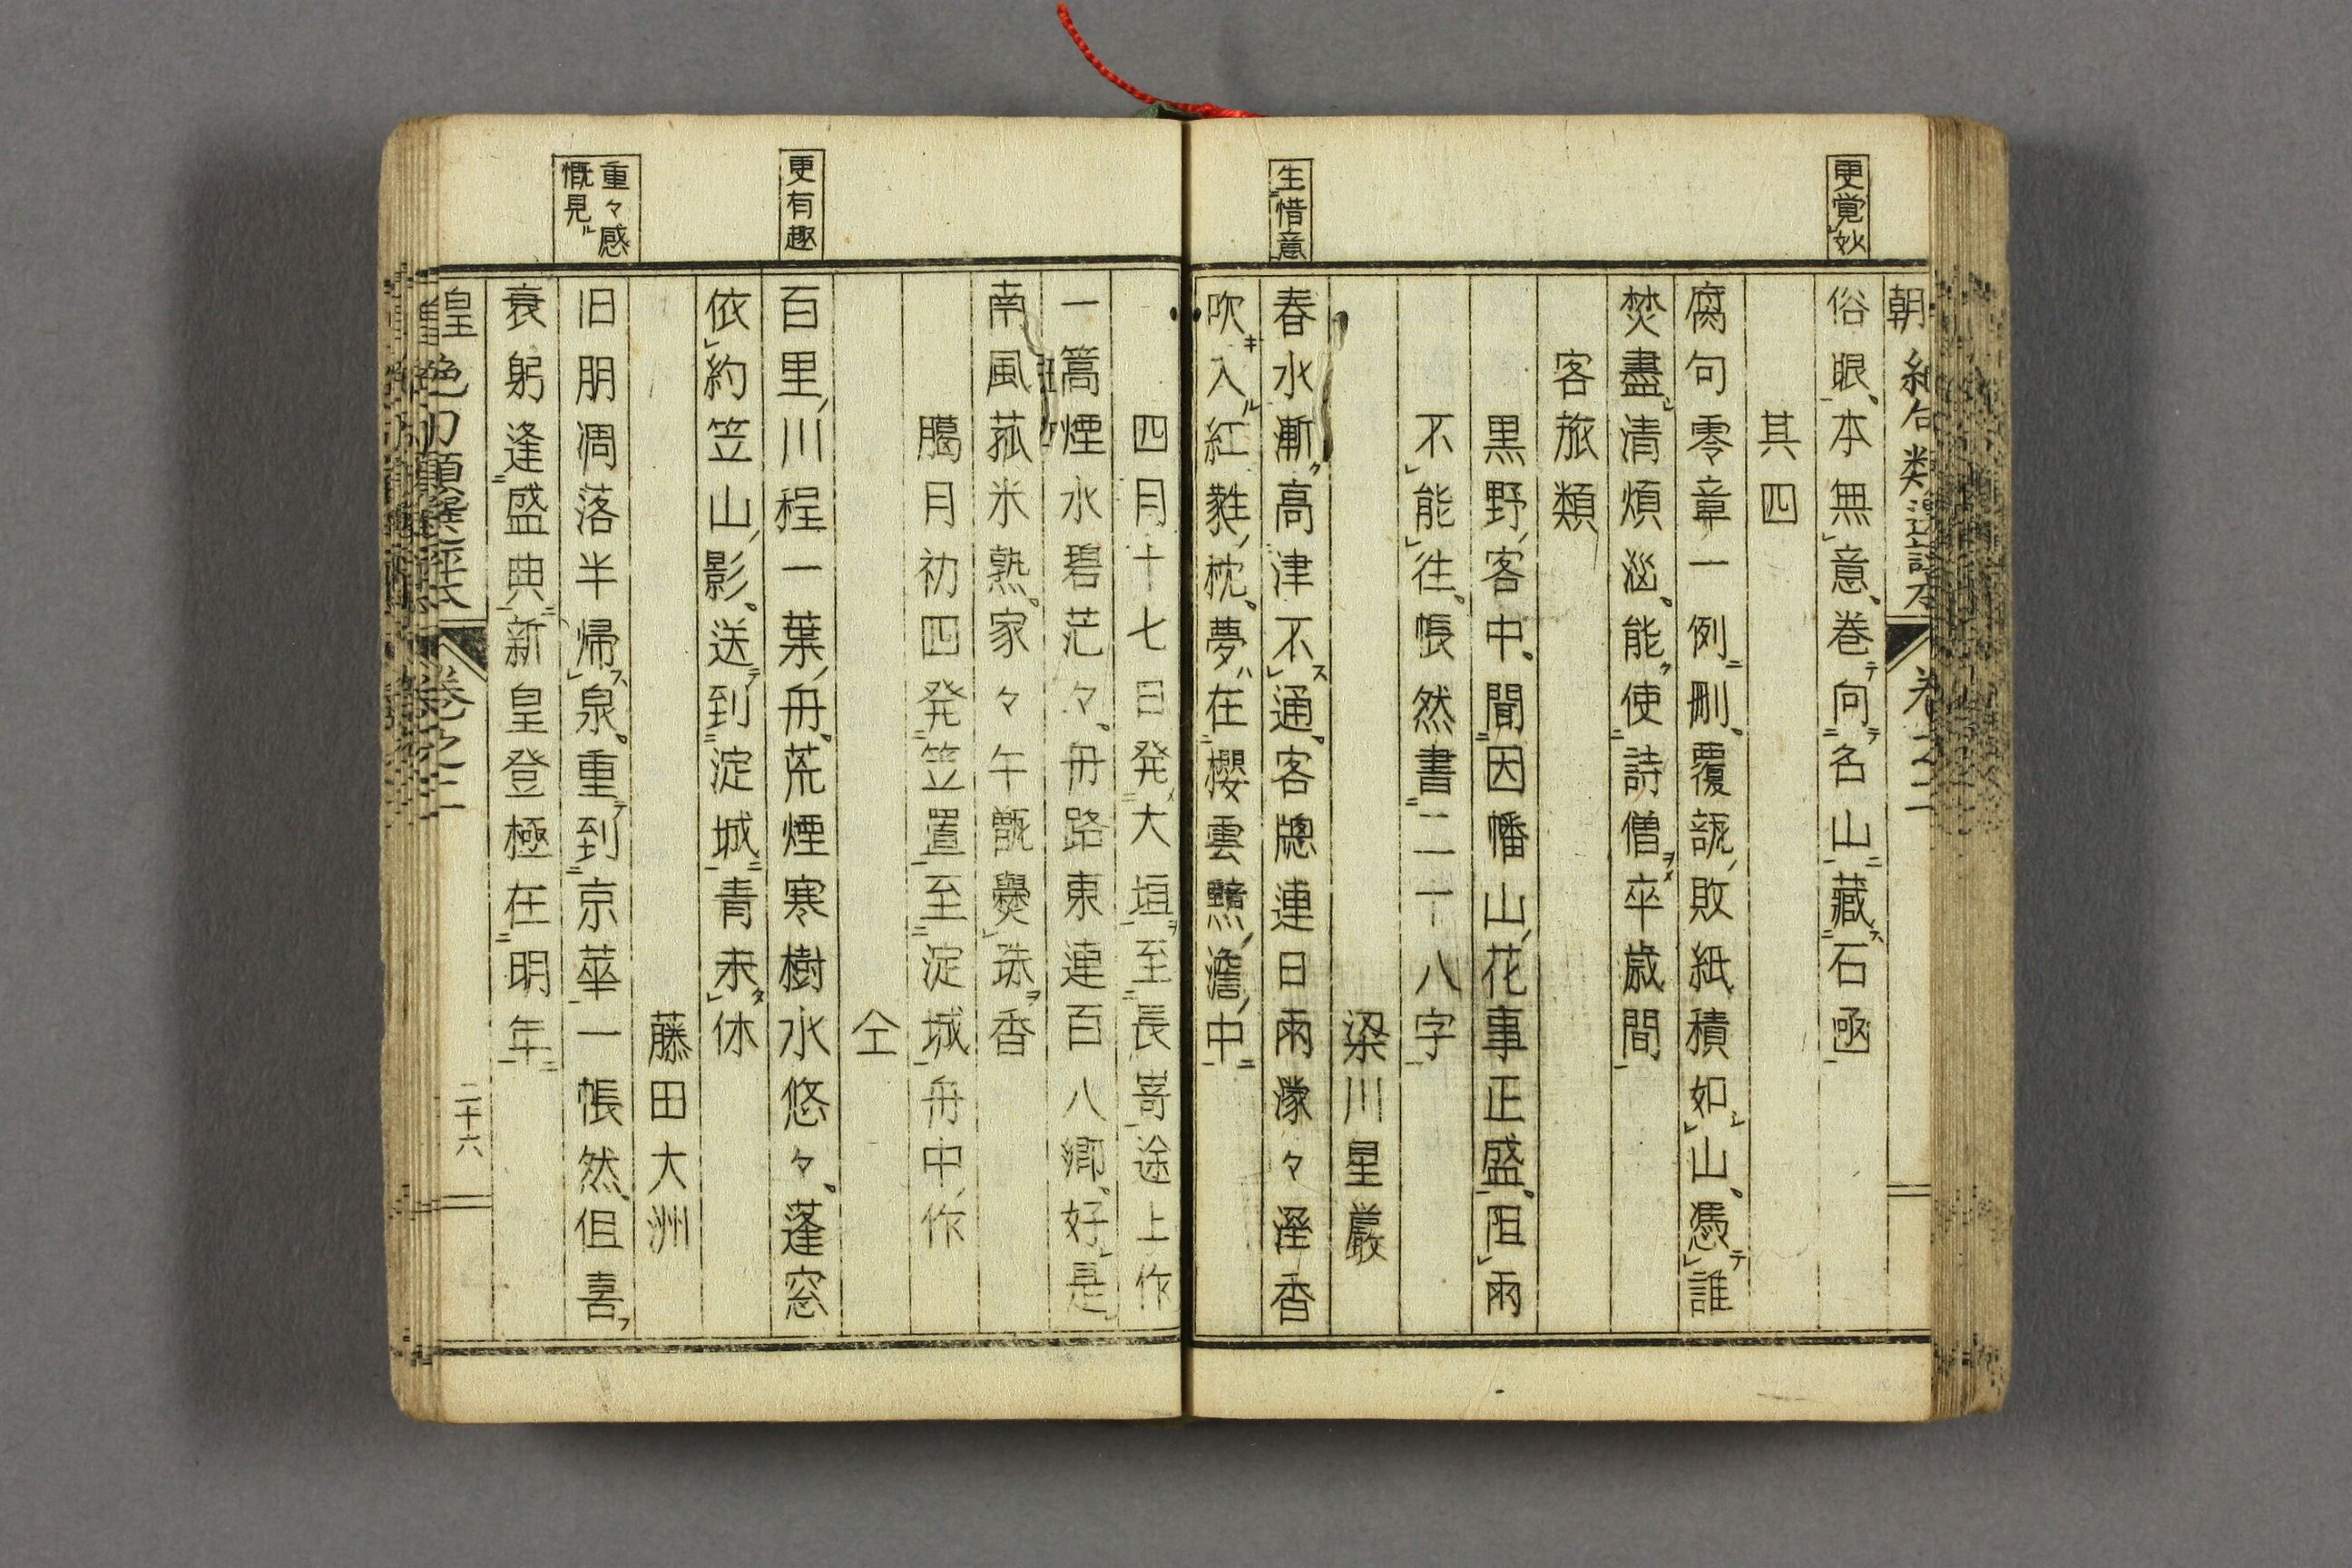 更覚妙
俗眼本無意。巻テ向ヲ名山ニ藏ス石凾
其四
腐句零章一例ニ刪。覆瓿ノ敗紙積如シ山。憑テ誰
焚盡シ清煩泌。能ク使詩僧ヲメ卒歳間
客旅類
黒野ノ客中。聞因幡山ノ花事正盛。阻雨
不能往。悵然書二十八字
梁川星巌
生惜意
春水漸ク高津不ス通。客牕連日雨濛々溼香
吹キ入ル紅蕤ノ枕。夢ハ在櫻雲黯澹ノ中ニ
四月十七日発メ大垣ヲ至長嵜途上作
一篙煙水碧茫々。舟路東連百八郷。好是
南風菰米熟。家々午甑爨珠ヲ香
臈月初四発笠置至淀城舟中ノ作
仝
更有趣
百里ノ川程一葉ノ舟。荒煙寒樹水悠々。蓬窓
依約笠山ノ影。送テ到淀城ニ青未タ休
藤田大洲
重々感
慨見ル
旧朋凋落半帰ス泉。重テ到京華一悵然。但喜フ
衰躬逢盛典ニ新皇登極在明年ニ
卷之二
二十六